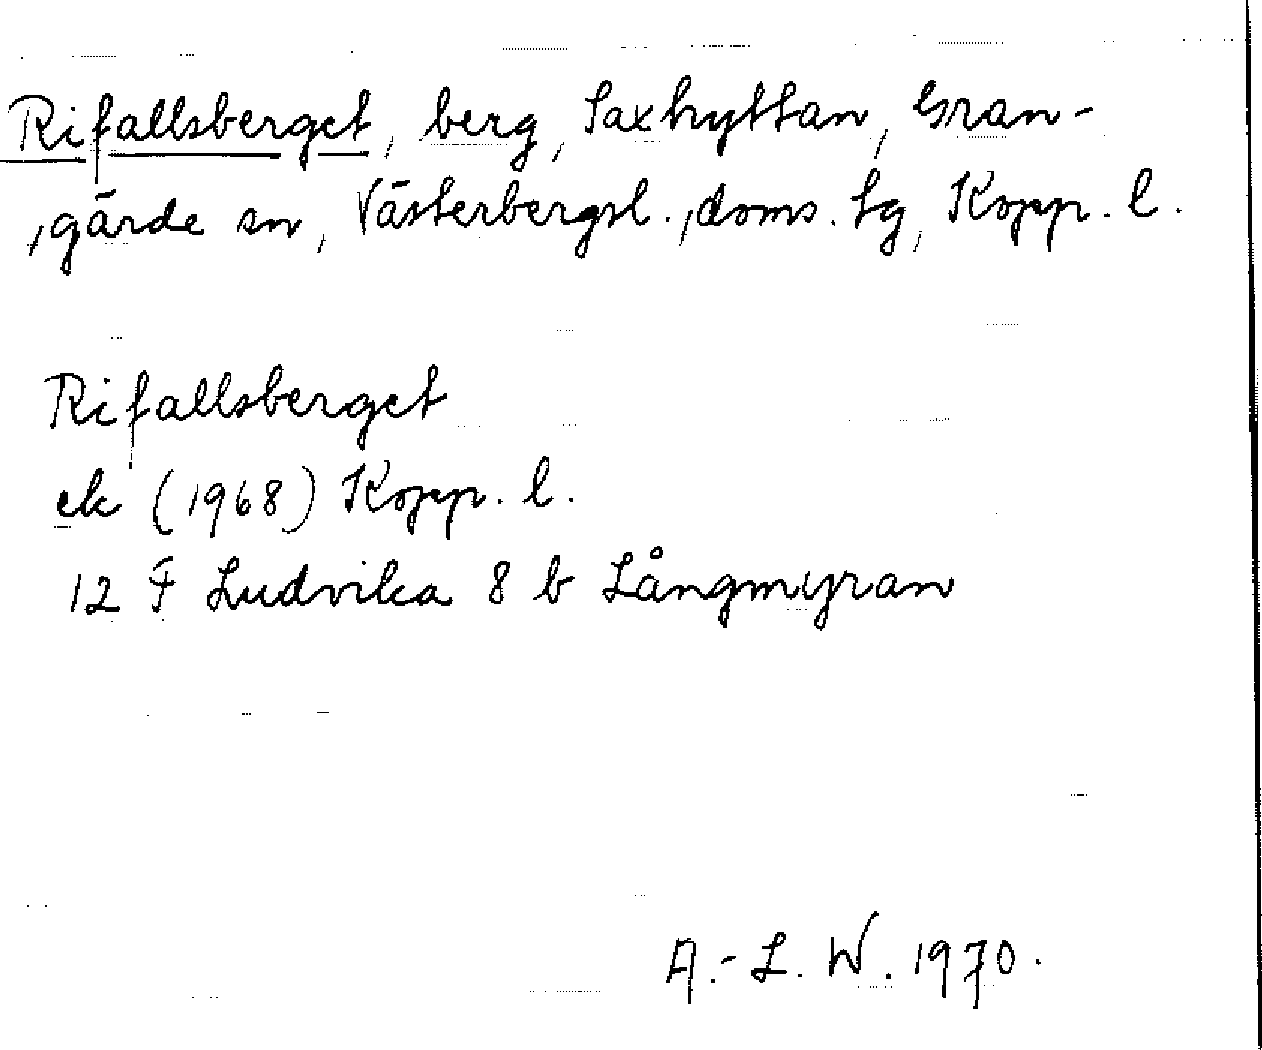 Rifallsberget, berg, Saxhyttan, Gran-
gärde sn, Västerbergsl. doms. tg, Kopp. l.
Rifallsberget
ek (1968) Kopp. l.
12 F Ludvika 8 b Långmyran
A.-L. W. 1970.